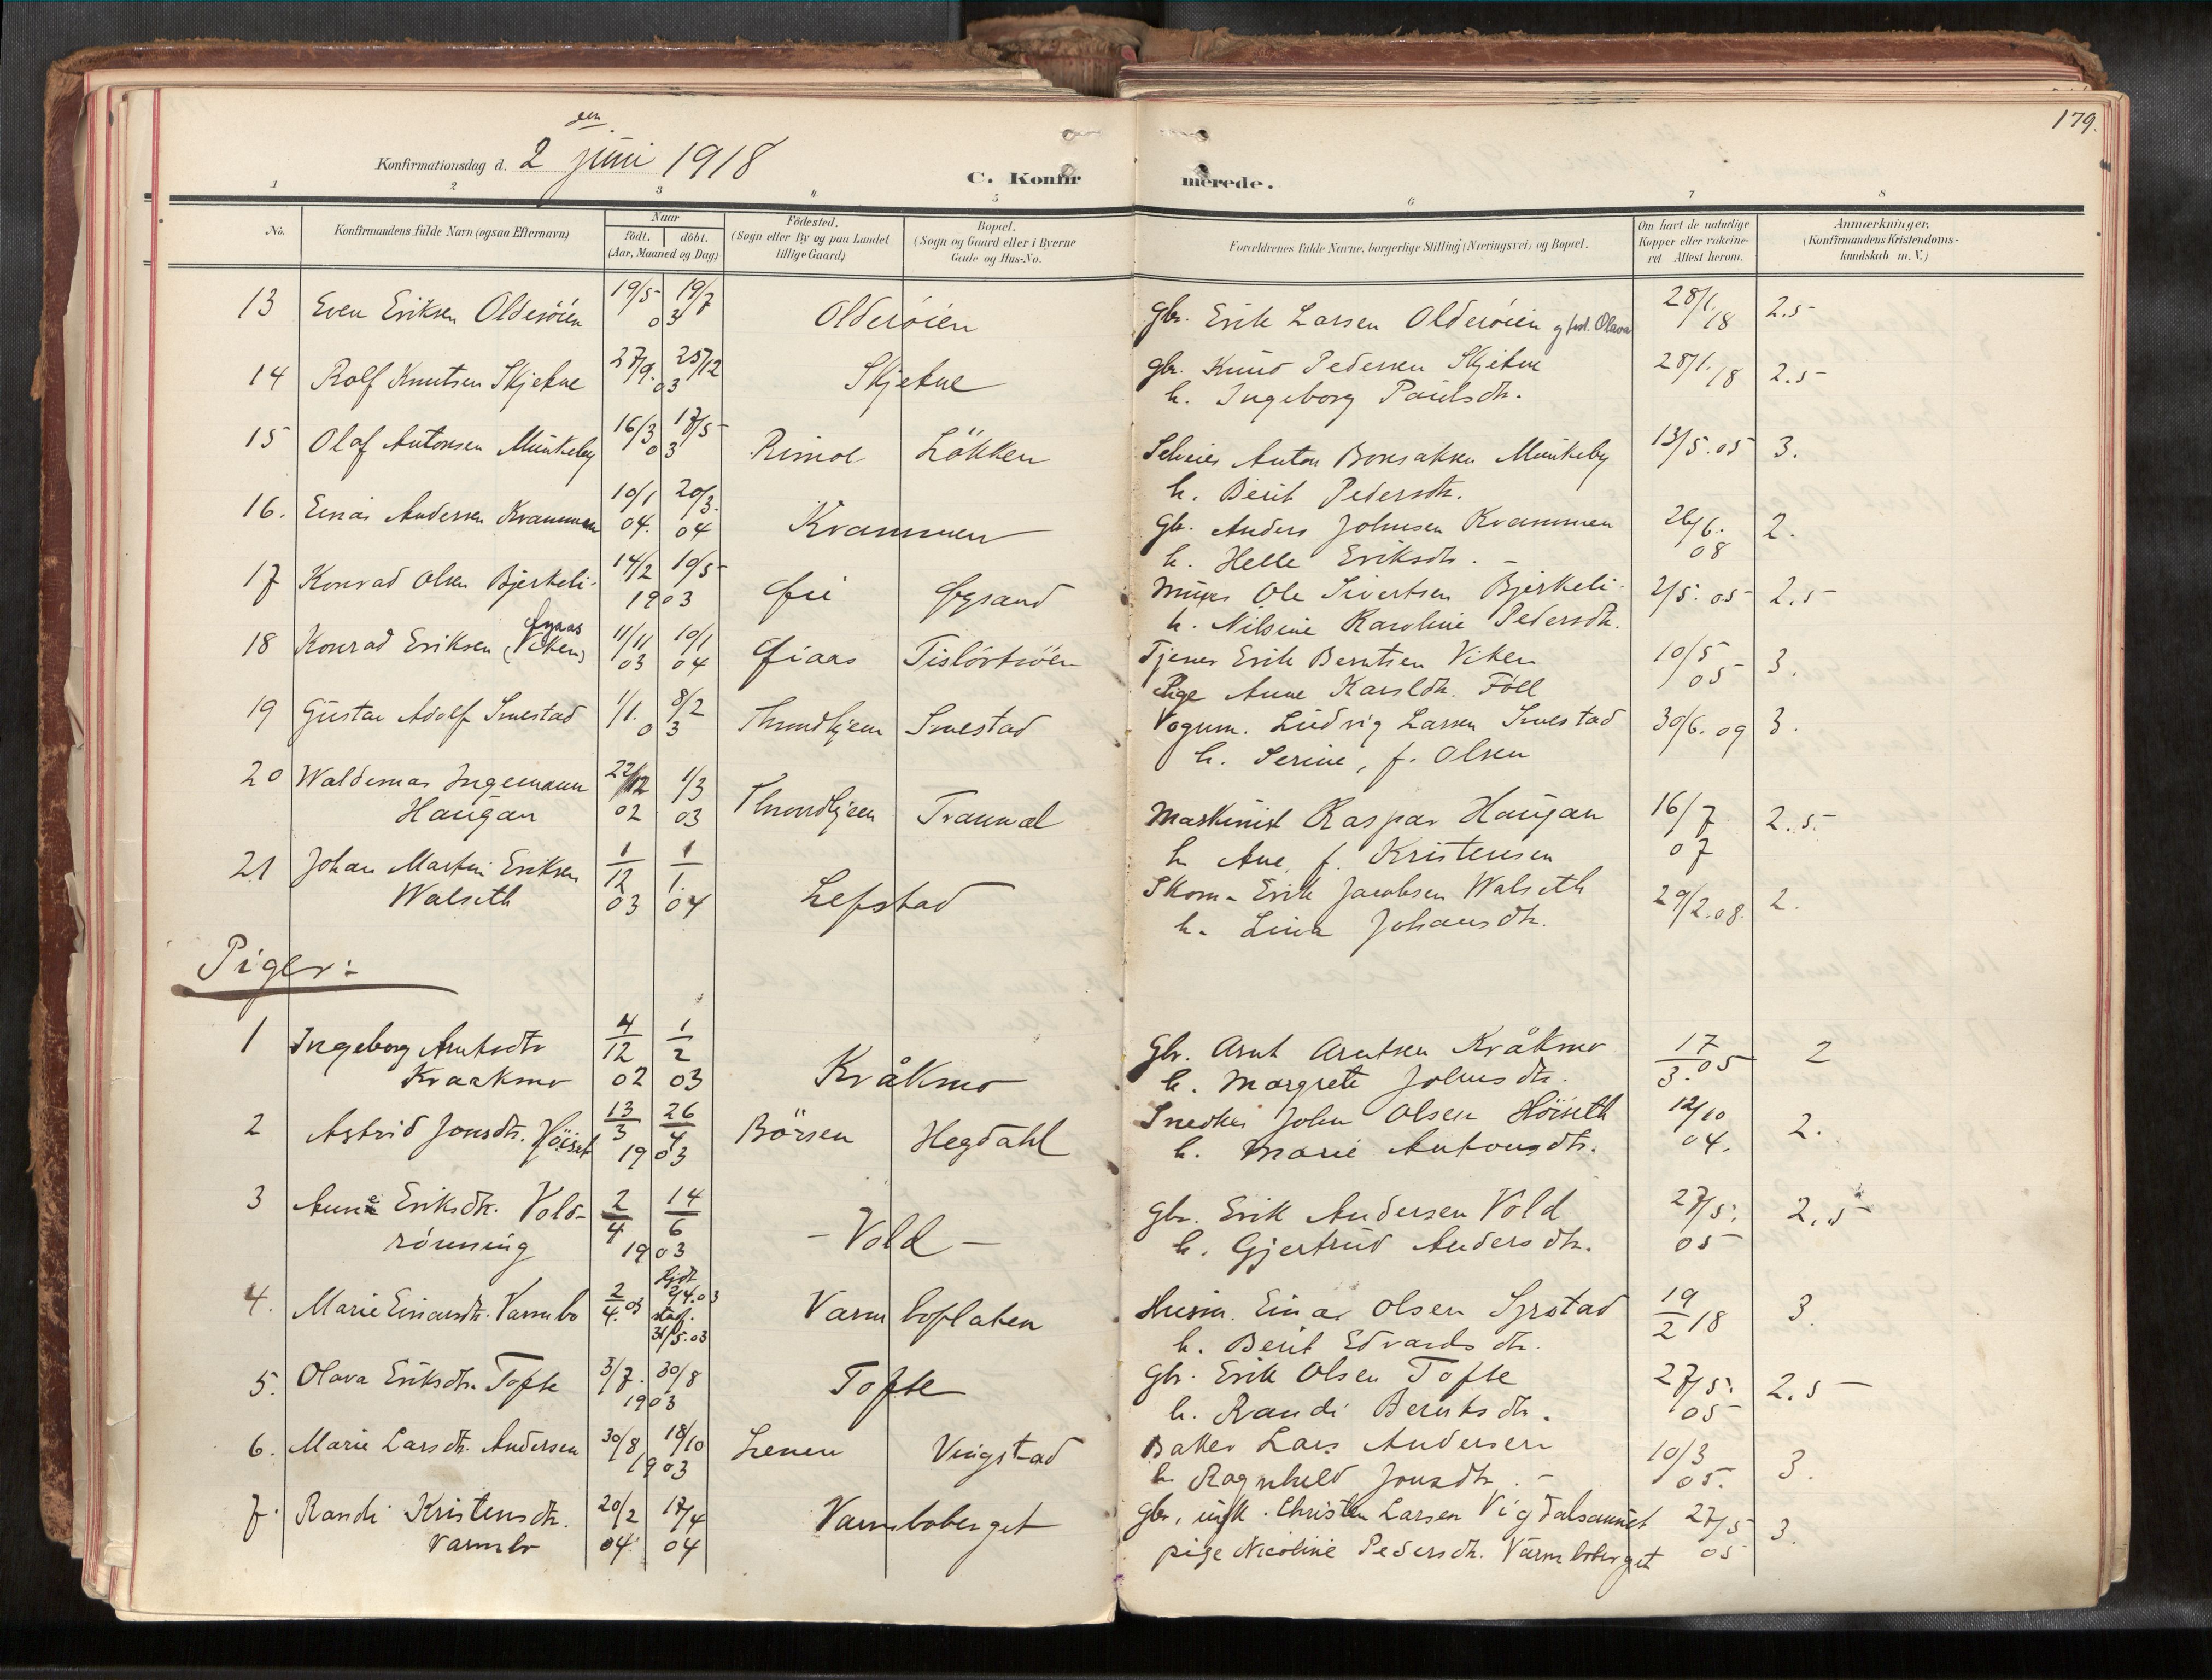 179.
den
Konfirmationsdag d. 2 juni 1918
C. Konfirmerede.
1 2 3 4 5 6 7 8
No. Konfirmandens fulde Navn (ogsaa Efternavn) Naar födt. döbt. (Aar, Maaned og Dag) Födested. (Sogn eller By og paa Landet tillige Gaard) Bopæl. (Sogn og Gaard eller i Byerne Gade og Hus-No. Forældrenes fulde Navne, borgerlige Stilling (Næringsvei) og Bopæl. Om havt de naturlige Kopper eller vakcineret Attest herom. Anmærkninger. (Konfirmandens Kristendomskundskab m. V.)
13 Even Eriksen Olderöien 19/5 19/7 03 Olderöien Gbr. Erik Larsen Olderöien Olava 28/1 18 2.5
14 Rolf Knutsen Skjetne 27/9. 25/12 03 Skjetne Gbr. Knud Pedersen Skjetne 28/1. 18 2.5
h. Ingeborg Paulsdtr.
15 Olaf Antonsen Munkeby 16/3 17/5 03 Rimol Lökken Selveier Anton Bonsaksen Munkeby 13/5.05 3.
h. Berit Pedersdtr.
16. Einar Andersen Krammen 10/1 04. 20/3. 04 Krammen Gbr. Anders Johnsen Krammen 26/6. 08 2.
h. Helle Eriksdtr. -
17 Konrad Olsen Bjerkeli 14/2 10/5 1903 Øie Øysand Murer Ole Sivertsen Bjerkeli 2/5. 05 2.5
h. Nilsine Karoline Pedersdtr.
18 Konrad Eriksen (Viken) Øyaas 11/11 03 10/1 04 Øiaas Tislövköen Tjener Erik Berntsen Viken 10/5 05 3.
Pige Anne Karsldtr. Föll
19 Gustav Adolf Smestad 1/1. 8/2 03 Throndhjem Smestad Vognm. Ludvig Larsen Smestad 30/6.09 3.
h. Serine, f. Olsen
20 Waldemar Ingemann Haugan 22/12 02 1/3 03 Throndhjem Tranmæl Maskinist Kaspar Haugan 16/7 07 2.5.
h. Ane, f. Kristensen
21 Johan Martin Eriksen Walseth 1/12 03 1/1. 04 Lefstad Skom. Erik Jacobsen Walseth 29/2.08. 2.
h. Lina Johansdtr.
Piger:
1 Ingeborg Arntsdtr Kraakmo 4/12 02 1/2 03 Kråkmo Gbr. Arnt Arntsen Kråkmo 17/3.05 2
h. Margrete Johnsdtr.
2 Astrid Jonsdtr. Höiset 13/3 26/4 1903 Börsen Hegdahl Snedker John Olsen Höiseth 12/10 04. 2.
h. Marie Antonsdtr.
3 Anne Eriksdtr. Voldrönning 2/4 14/6 1903 - Vold - Gbr. Erik Andersen Vold 27/5. 05 2.5
h. Gjertrud Andersdtr.
4. Marie Einarsdtr. Varmbo 2/4.03 hjdt. 2/4.03 stadf. 31/5.03 Varmboplaken Husm. Einar Olsen Syrstad 19/2 18 3.
h. Berit Edvardsdtr.
5. Olava Eriksdtr. Tofte 3/7. 30/8 1903 Tofte Gbr. Erik Olsen Tofte 27/5. 05 2.5
h. Randi Berntsdtr.
6. Marie Larsdtr. Andersen 30/8 18/10 1903 Lenen Vingstad Baker Lars Andersen 10/3 05. 3.
h. Ragnhild Jonsdtr. -
7. Randi Kristensdtr. Varmbo 20/2 04. 17/4 04 Varmboberget Gbr, Christen Larsen Vigdalsaunet 27/5 05 3.
pige Nicoline Pedersdtr. Varmboberget